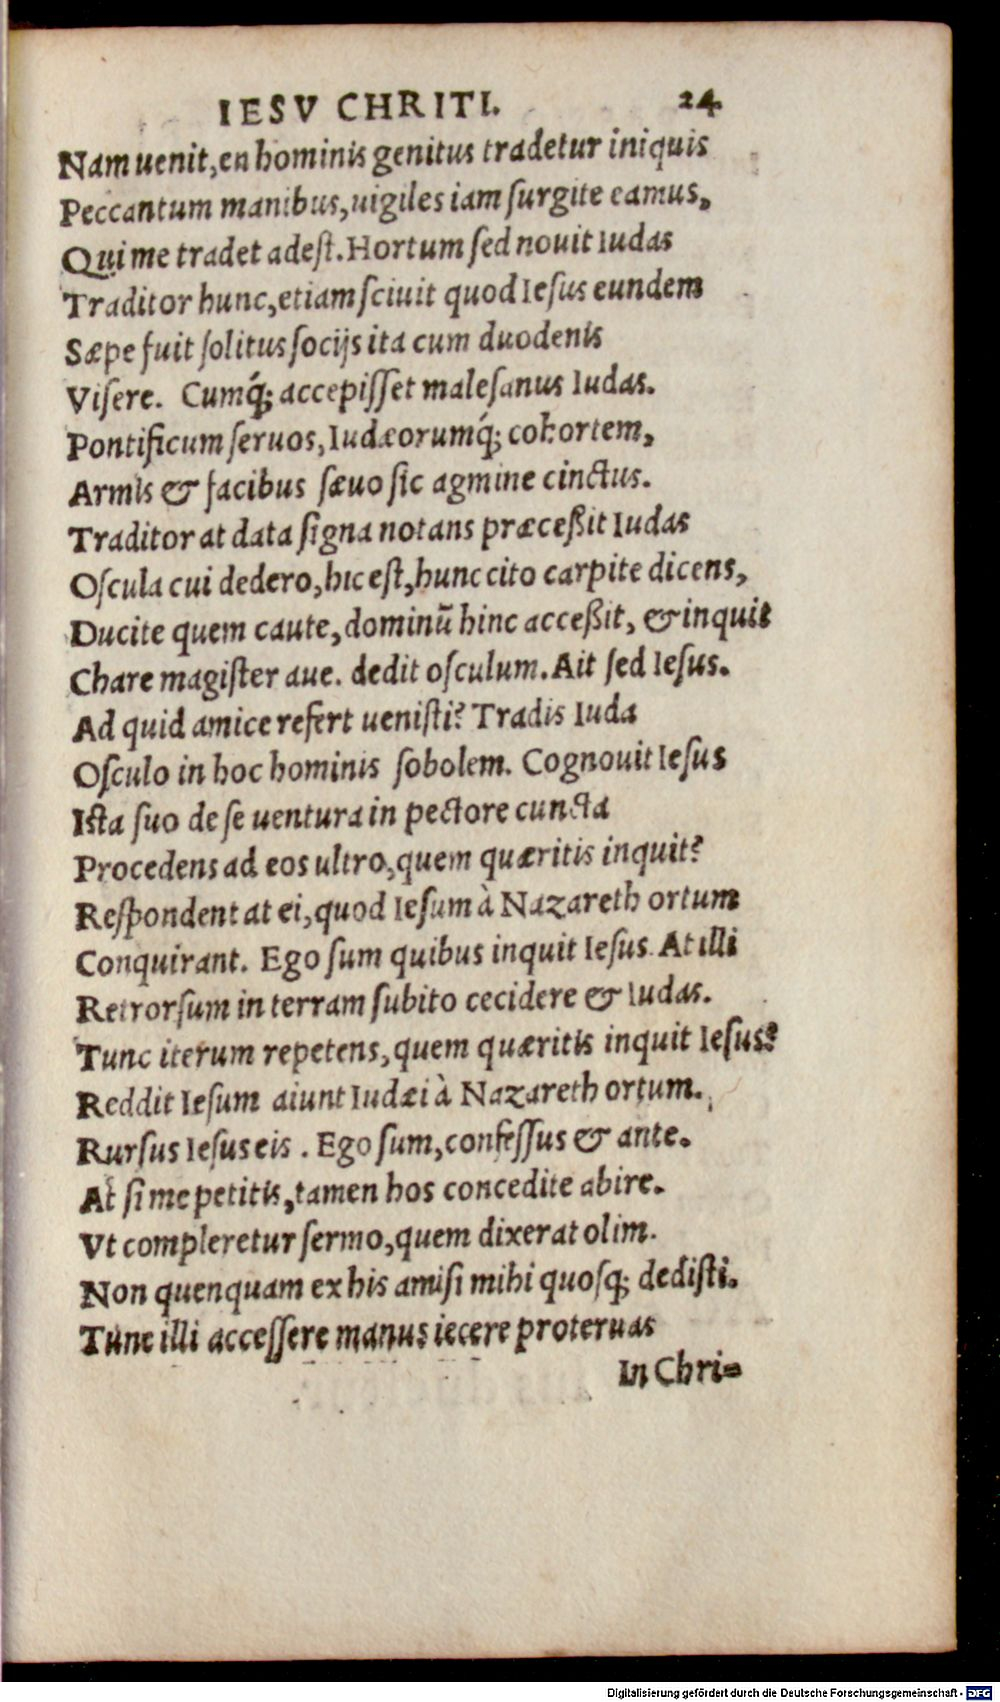 IESV CHRITI. 24
Nam uenit, en hominis genitus tradetur iniquis
Peccantum manibus, uigiles iam ſurgite eamus,
Qui me tradet adeſt. Hortum ſed nouit Iudas
Traditor hunc, etiam ſciuit quod Ieſus eundem
Sæpe fuit ſolitus ſocijs ita cum duodenis
Viſere. Cumq́; accepiſſet maleſanus Iudas.
Pontificum ſeruos, Iudæorumq́; cohortem,
Armis & facibus ſæuo ſic agmine cinctus.
Traditor at data ſigna notans præceßit Iudas
Oſcula cui dedero, hic eſt, hunc cito carpite dicens,
Ducite quem caute, dominũ hinc acceßit, & inquit
Chare magiſter aue. dedit oſculum. Ait ſed Ieſus.
Ad quid amice refert ueniſti? Tradis Iuda
Oſculo in hoc hominis ſobolem. Cognouit Ieſus
Iſta ſuo de ſe uentura in pectore cuncta
Procedens ad eos ultro, quem quæritis inquit?
Reſpondent at ei, quod Ieſum à Nazareth ortum
Conquirant. Ego ſum quibus inquit Ieſus. At illi
Retrorſum in terram ſubito cecidere & Iudas.
Tunc iterum repetens, quem quæritis inquit Ieſus?
Reddit Ieſum aiunt Iudæi à Nazareth ortum.
Rurſus Ieſus eis. Ego ſum, confeſſus & ante.
At ſi me petitis, tamen hos concedite abire.
Vt compleretur ſermo, quem dixerat olim.
Non quenquam ex his amiſi mihi quoſq; dediſti.
Tunc illi acceſſere manus iecere proteruas
In Chri=
Digitalisierung gefördert durch die Deutsche Forschungsgemeinschaft - DFG